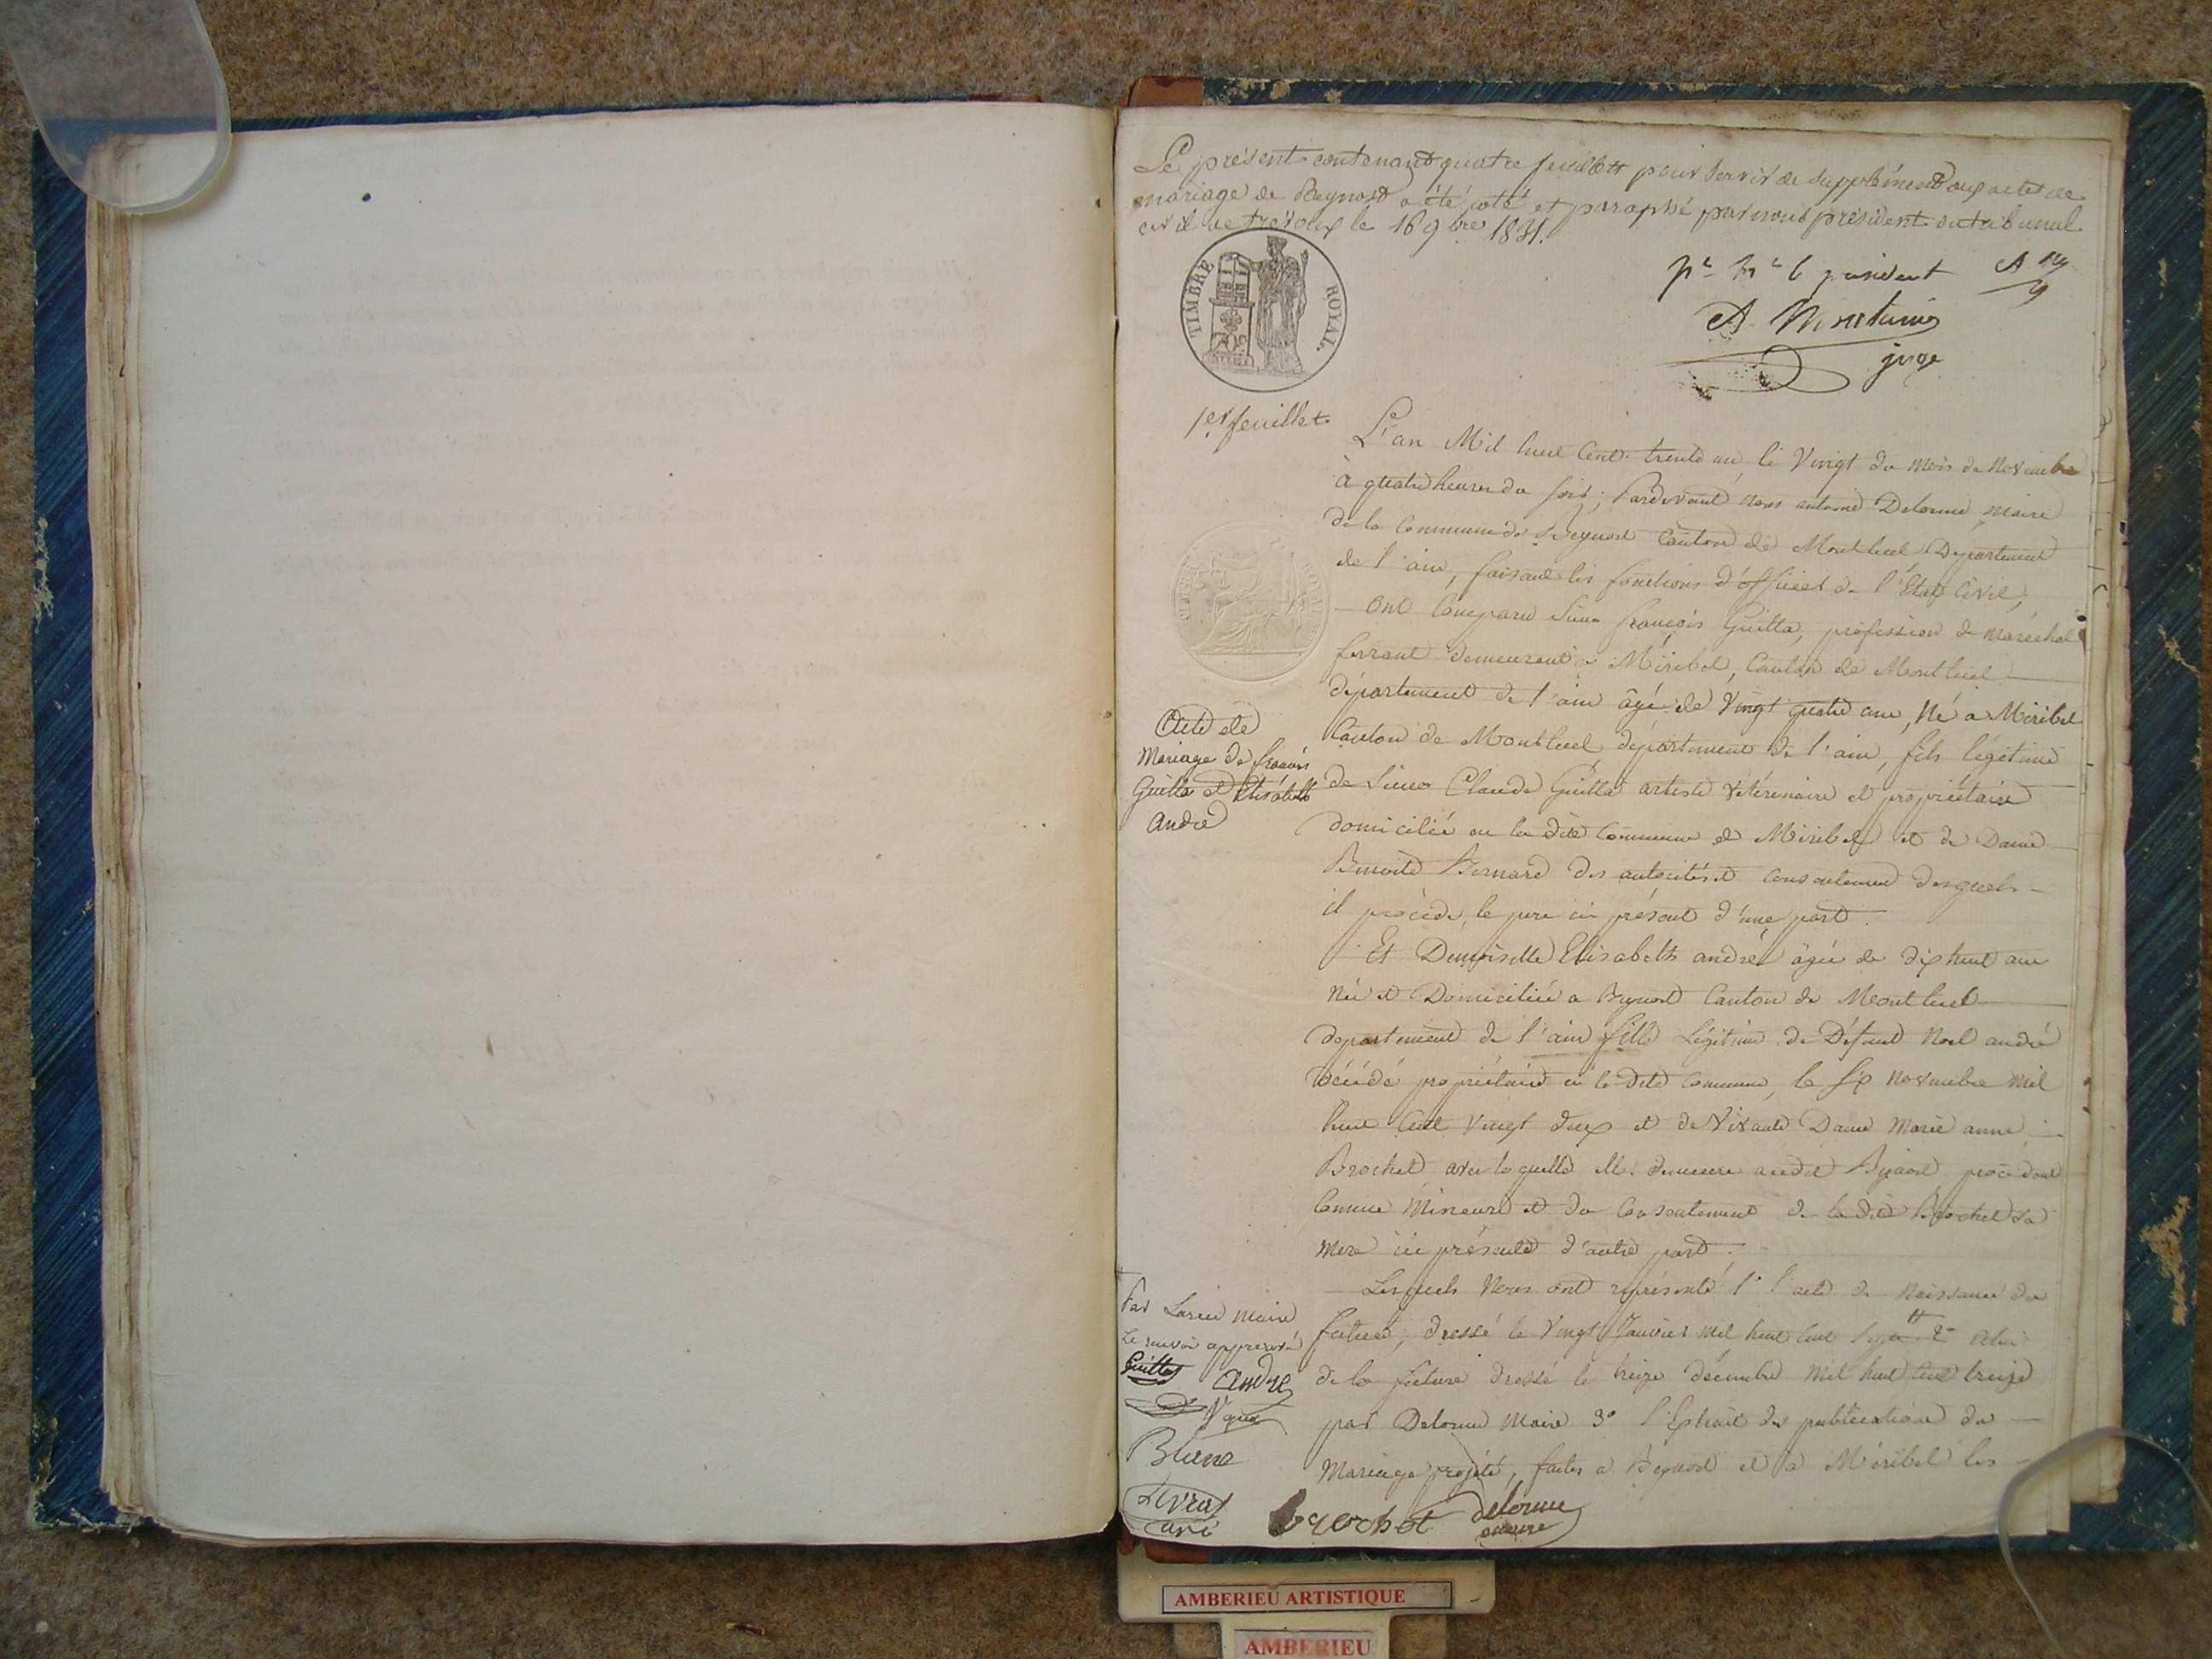 Le présent contenant quatre feuillets pour servir de supplément aux actes de
mariage de Beynost a été coté et paraphé par nous président du tribunal
civil de Trévoux le 16 9bre 1831.
pr Mr le président
A
juge
TIMBRE ROYAL.
1er feuillet
L'an Mil huit Cent trente un, le Vingt du mois de Novembre
à quatre heures du soir; Pardevant nous antoine Delorme maire
de la Commune de Beynost Canton de Montluel Département
de l'ain, faisant les fonctions d'officier de l'Etat Civil,
Ont Comparu Sieur françois Guitta, profession de maréchal
ferrant demeurant a Miribel, Canton de Montluel
département de l'ain âgé de Vingt quatre ans, Né a Miribel
Canton de Montluel département de l'ain, fils légitime
de Sieur Claude Guitta artiste vétérinaire et propriétaire
domicilié en la dite Commune de Miribel et de Dame
Benoite Bernard des autorité et consentement desquels
il procède, le père ici présent d'une part.
Et Demoiselle Elisabeth andré âgée de dix huit ans
Née et Domiciliée a Beynost Canton de Montluel
département de l'ain fille Légitime de Défunt Noel andré
décédé propriétaire en la dite commune, le six Novembre mil
huit Cent vingt deux et de Vivante Dame Marie anne
Brochet avec laquelle elle demeure audit Beynost procédant
Comme Mineure et du Consentement de la dite Brochet sa
mere ici présente d'autre part.
Lesquels Nous ont représenté 1° l'acte de Naissance du
futur, dressé le Vingt Janvier mil huit Cent sept 2° celui
de la future dressé le treize décembre mil huit Cent treize
par Delorme Maire 3° l'Extrait des publications du
Mariage projeté, faites a Beynost et a Miribel les
Acte de
Mariage de françois
Guitta et Elisabeth
André
Par maire
Le renvoi approuvé
Guitta
André
Blanc
brochet
delorme
maire
AMBERIEU ARTISTIQUE
AMBERIEU